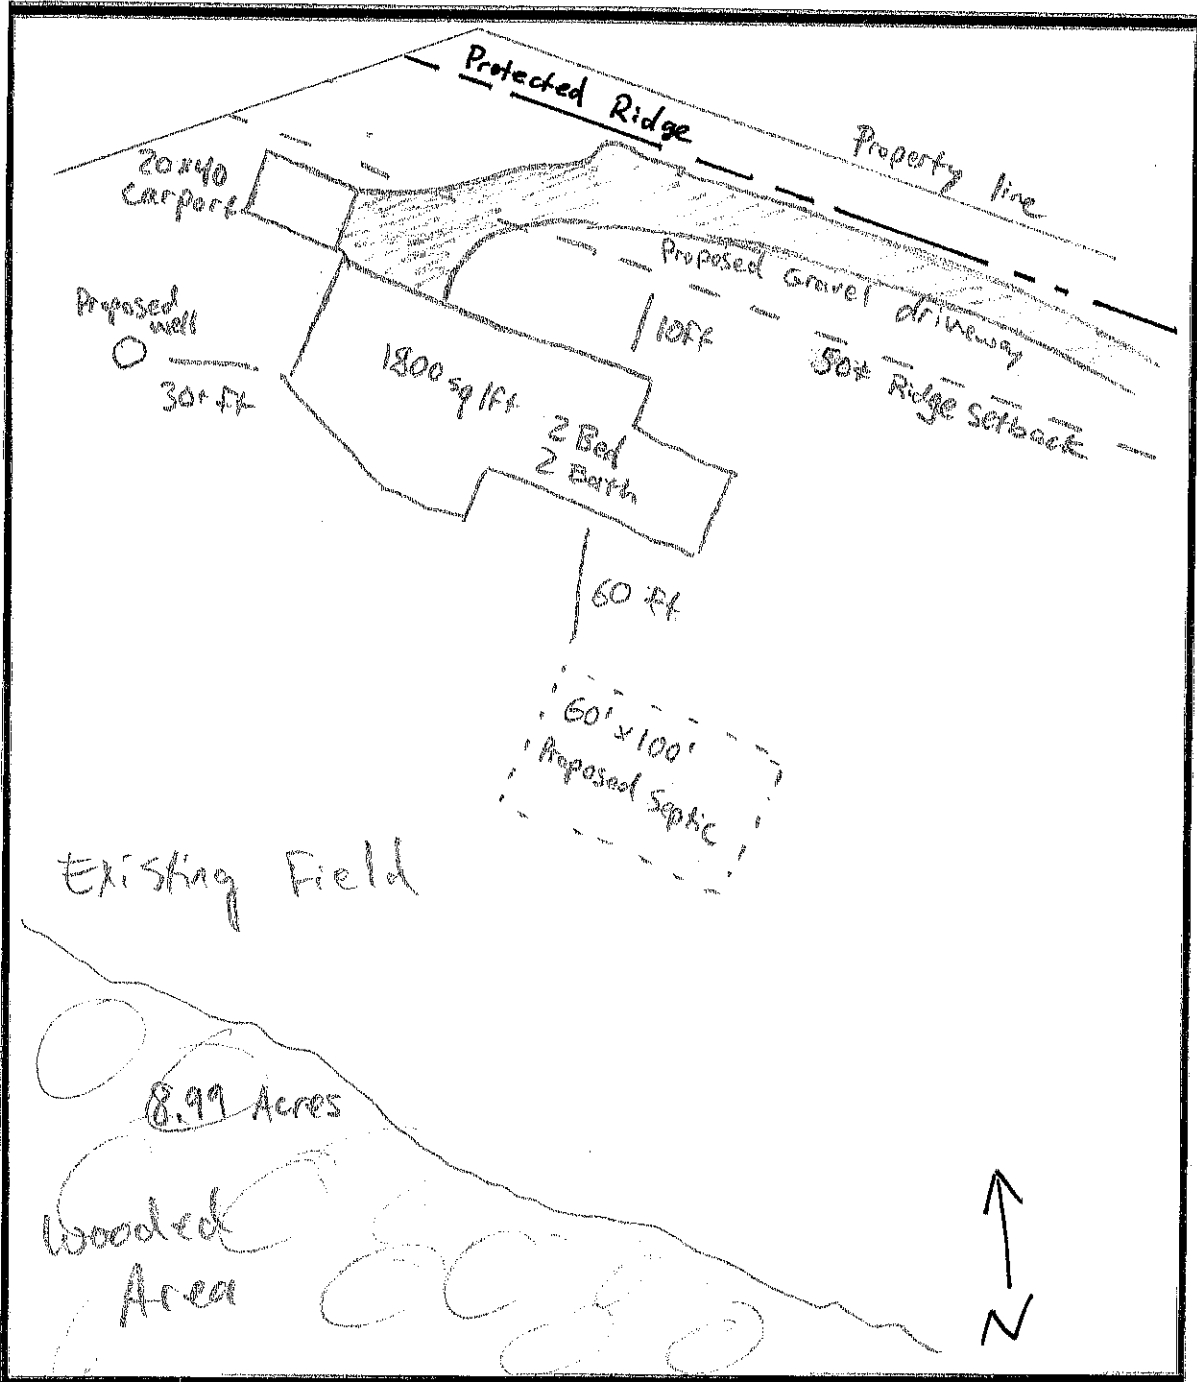 Protected Ridge
Property line
20x40
carport
Proposed Gravel driveway
Proposed
well
10ft
50ft Ridge setback
30+ ft
1800 sq/ft
2 Bed
2 Bath
60 ft
60' x 100'
Proposed Septic
Existing Field
8.99 Acres
Wooded
Area
N